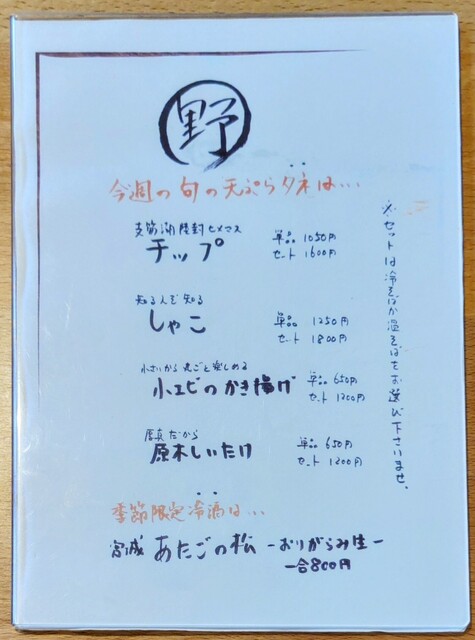 野
今週の旬の天ぷらタネは…
支笏湖開封ヒメマス
チップ
単品 1050円
セット 1600円
知る人ぞ知る
しゃこ
単品 1250円
セット 1800円
小さいから丸ごと楽しめる
小エビのかき揚げ
単品 650円
セット 1200円
厚真だから
原木しいたけ
単品 650円
セット 1200円
※セットは冷そばか温そばをお選び下さいませ。
季節限定冷酒は…
宮城 あたごの松 -おりがらみ生-
一合800円